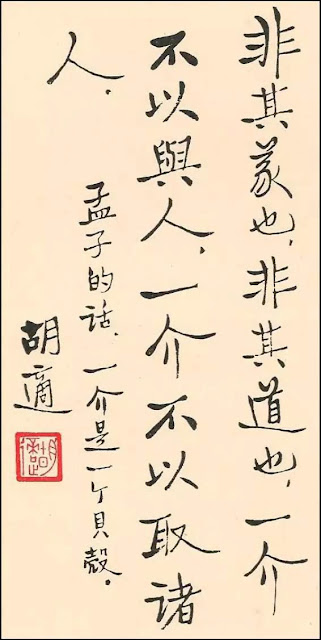 非其義也，非其道也，一介
不以與人，一介不以取诸
人．
孟子的话．一介是一个貝殼．
胡適
胡適